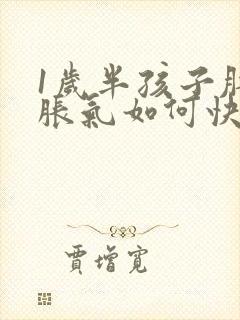 1歲半孩子
脹氣如何快
賈增寬